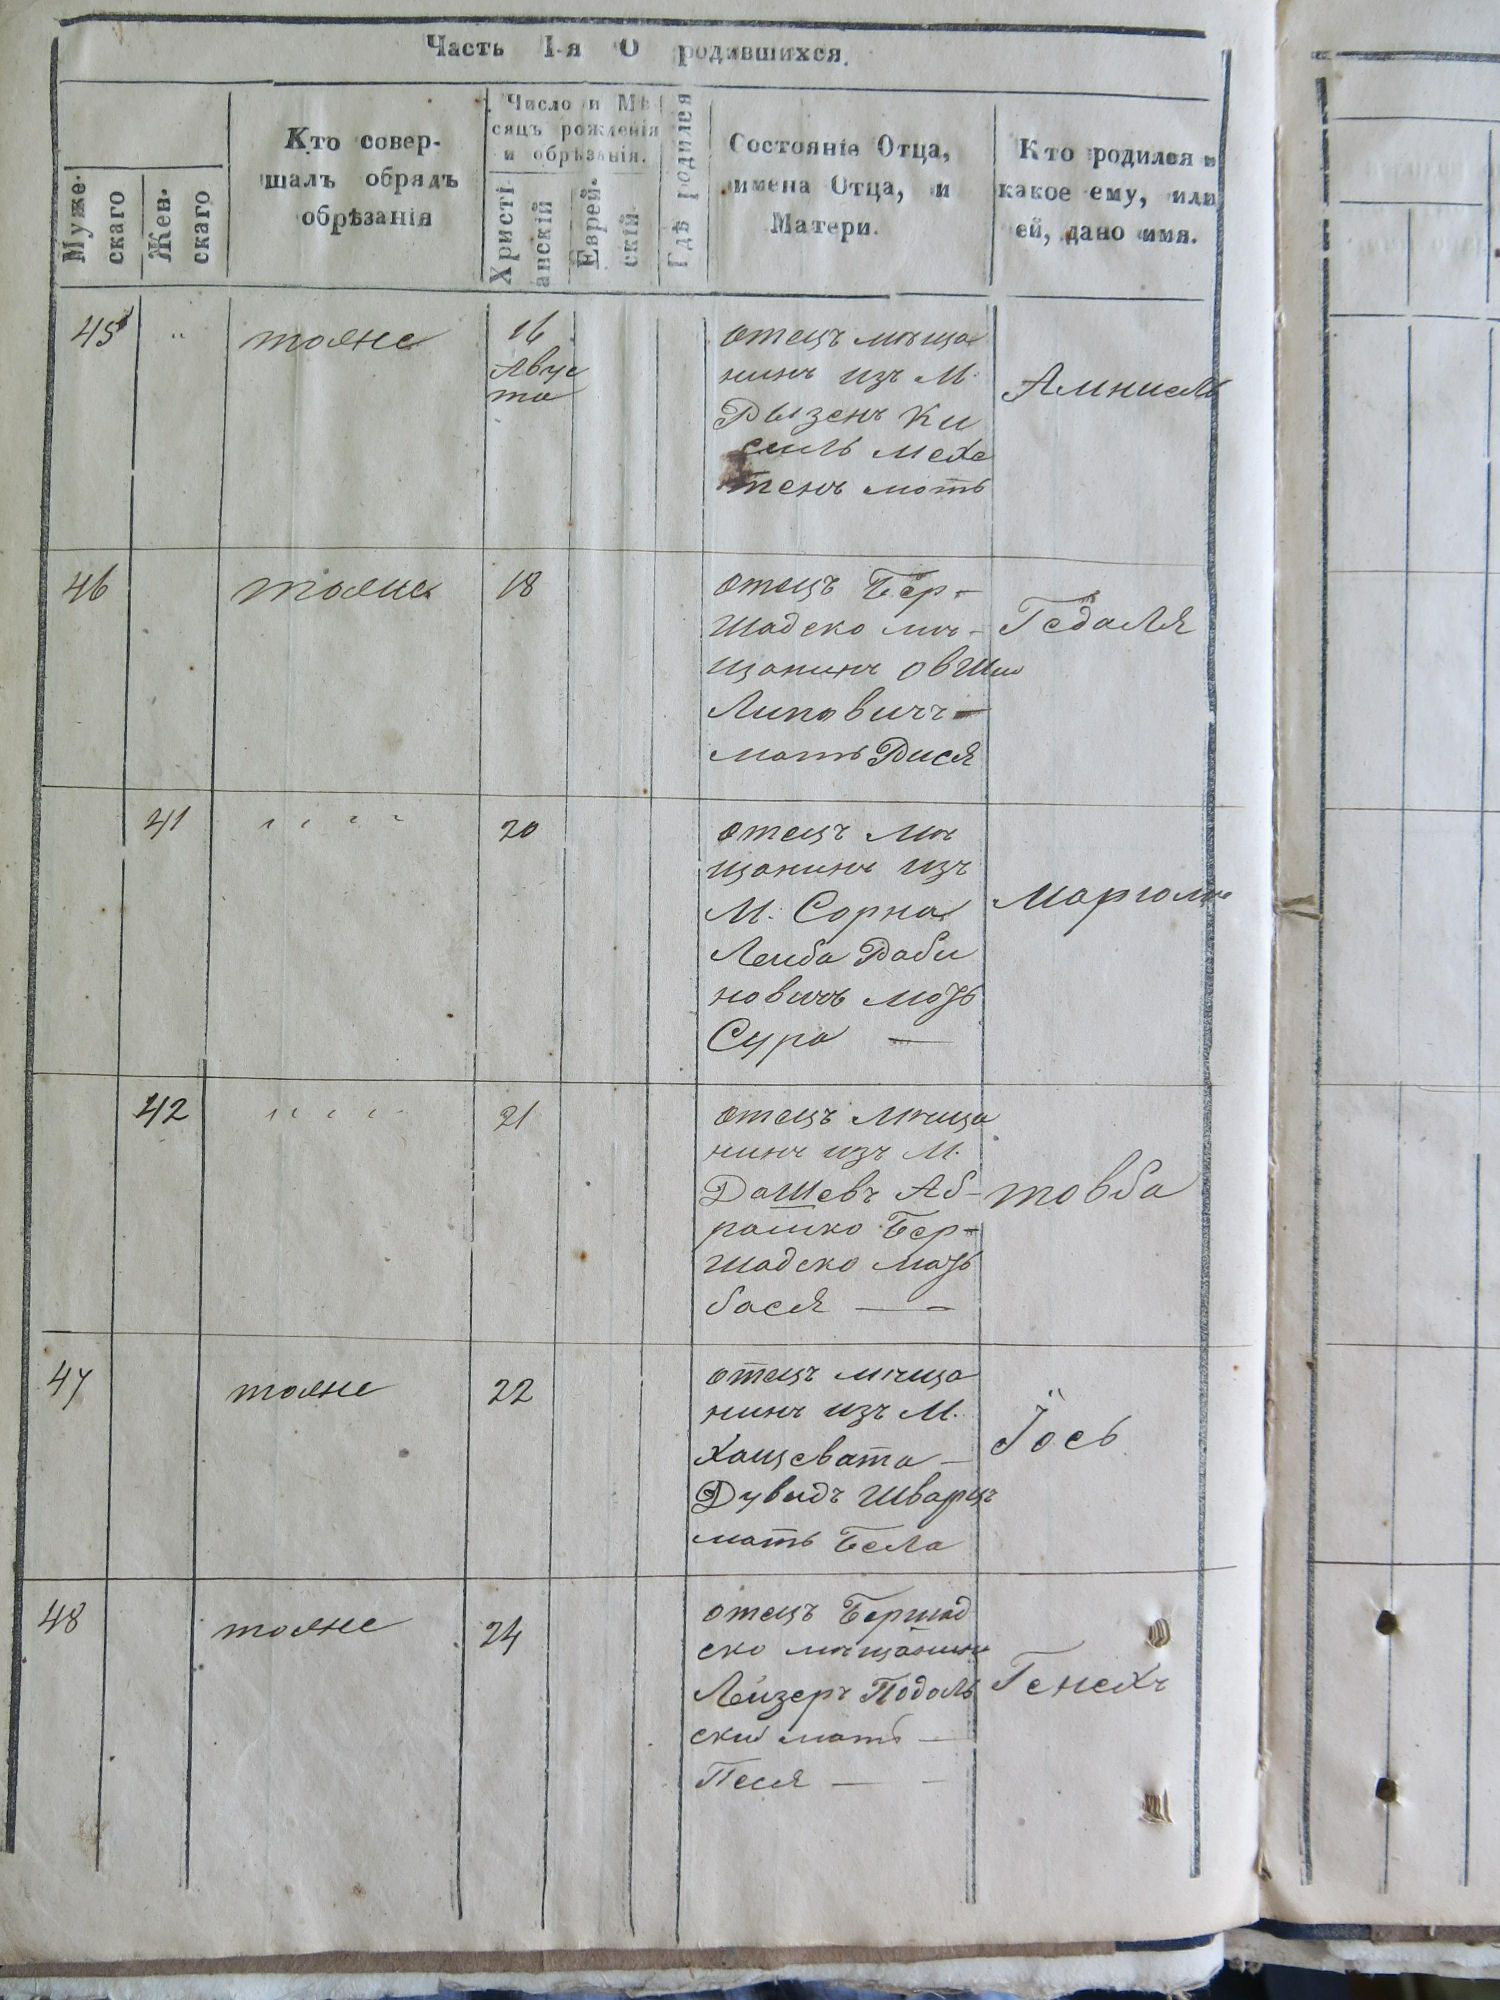 Часть I-я О родившихся.
Муже-
скаго
Жен-
скаго
Кто совер-
шалъ обрядъ
обрѣзанія
Число и Мѣ
сяцъ рожденія
и обрѣзанія.
Христі
анскій
Еврей-
скій
Гдѣ родился
Состояніе Отца,
имена Отца, и
Матери.
Кто родился и
какое ему, или
ей, дано имя.
45
тояже
16
Авгус
та
отецъ мѣща
нинъ изъ М.
Рызенъ Ки
сель
тенъ мать
46
тояже
18
отецъ Бер-
шадско мѣ-
щанинъ Овши
Липовичъ
мать Рися
Гедаля
41
20
отецъ мѣ
щанинъ изъ
М. Сорна
Лейба Раби
новичъ мать
Сура
42
21
отецъ мѣща
нинъ изъ М.
Дашевъ Аб-
рамко Бер-
шадско мать
бася
товба
47
тояже
22
отецъ мѣща
нинъ изъ М.
Хащевата
Дувидъ Шварцъ
мать Бела
Іось
48
тояже
24
отецъ Бершад
ско мѣщанинъ
Лейзеръ Подоль
ский мать
Песя
Генехъ